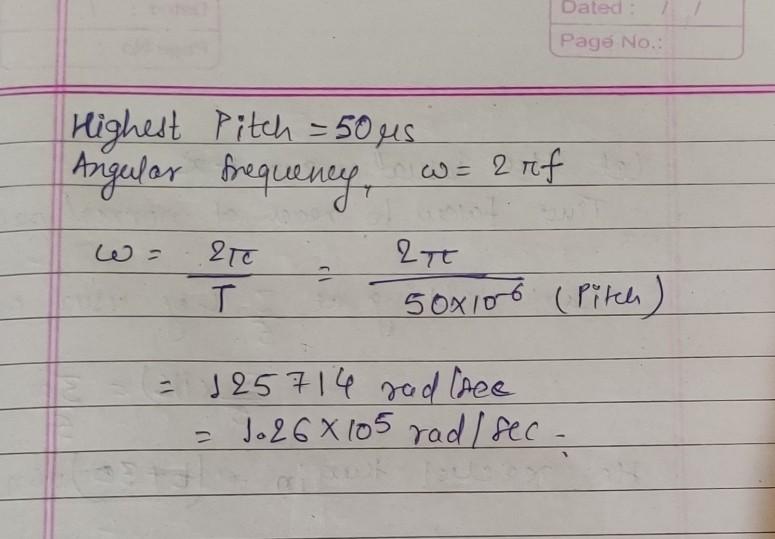 Dated : / /
Page No.:
Highest Pitch = 50 μs
Angular frequency, ω = 2πf
ω = 2π/T = 2π/50×10⁻⁶ (Pitch)
= 125714 rad/sec
= 1.26 × 10⁵ rad/sec -